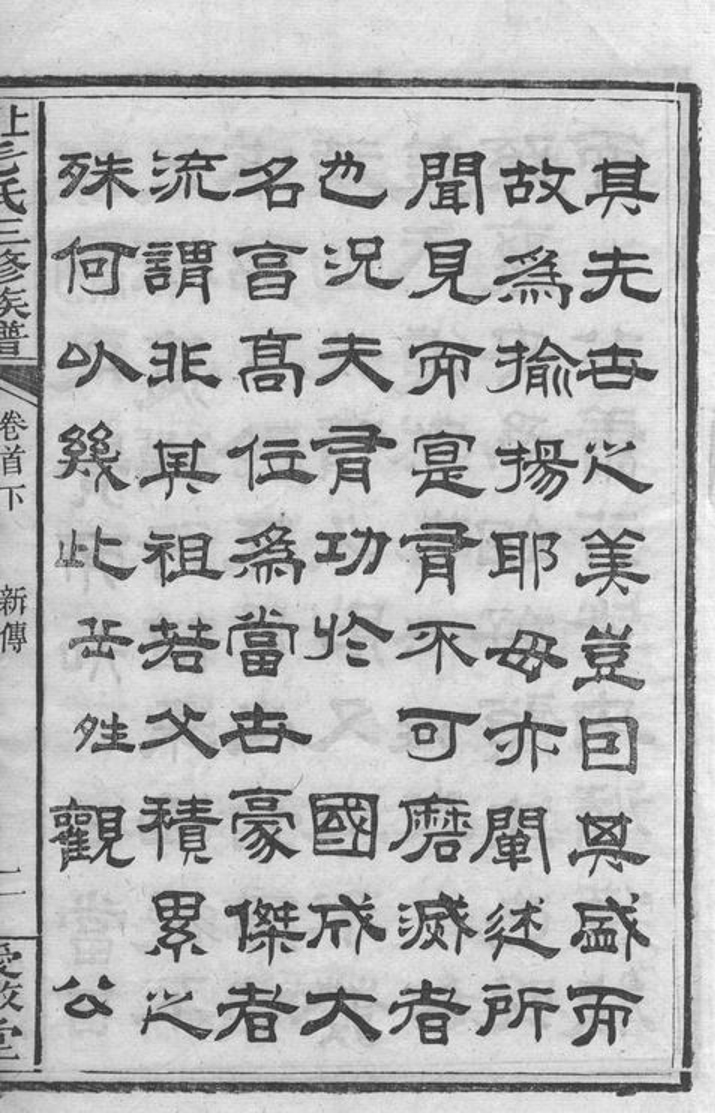 其先世之美豈因其盛而
故為揄揚耶毋亦闡述所
聞見而寔有不可磨滅者
也況夫有功於 國成大
名官高位為當世豪傑者
流謂非其祖若父積累之
殊何以幾此 姓觀 公
毛氏三修族譜
卷首下 新傳
二
堂